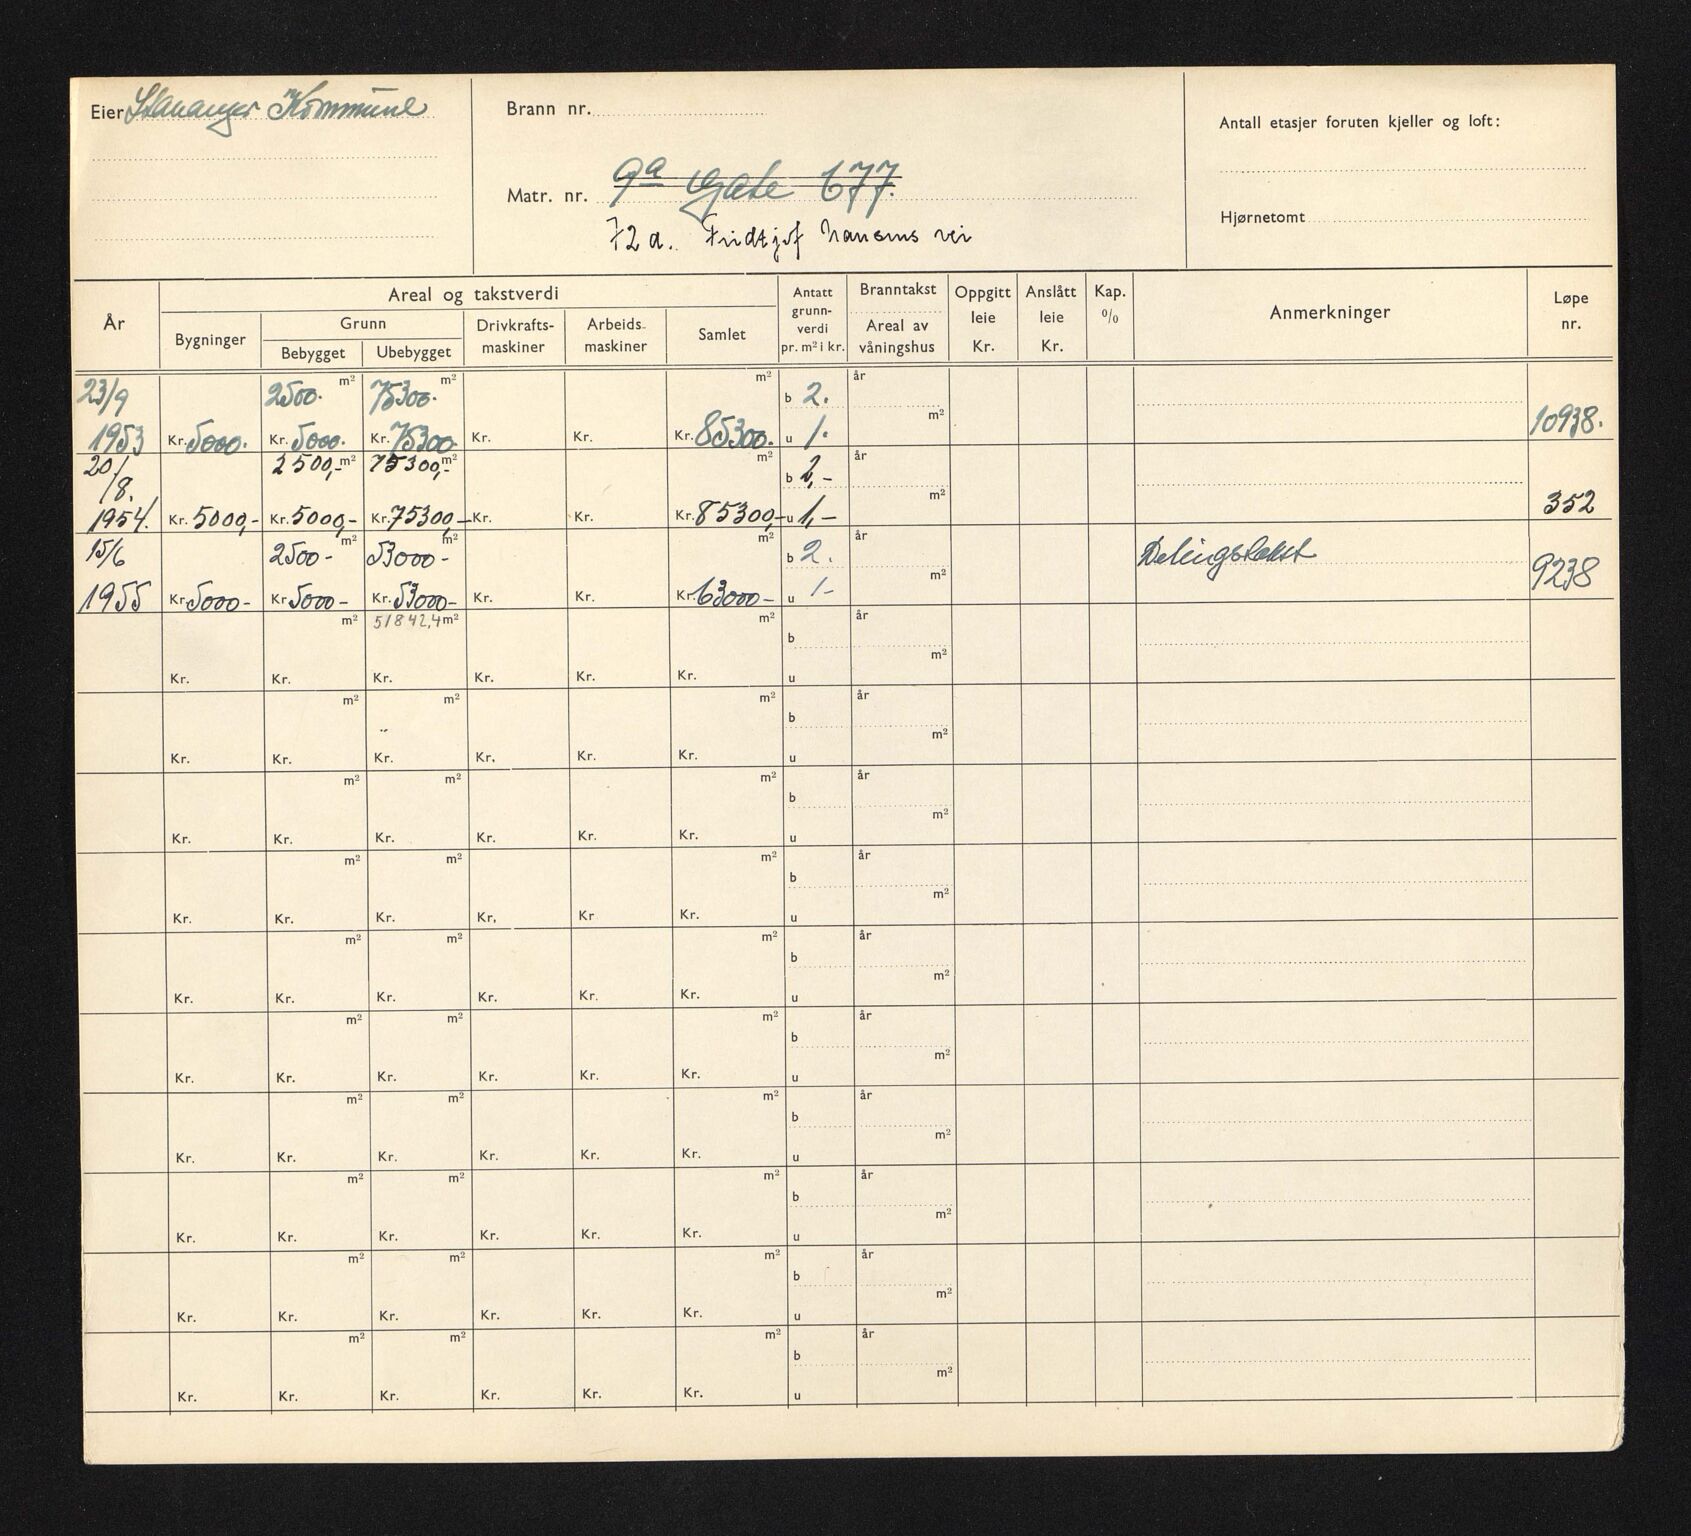 Eier Stavanger Kommune
Brann nr.
Antall etasjer foruten kjeller og loft:
Matr. nr. 9a Gate 677.
Hjørnetomt
72 a. Fridtjof Nansens vei
År
Areal og takstverdi
Bygninger
Grunn
Bebygget
Ubebygget
Drivkrafts-
maskiner
Arbeids-
maskiner
Samlet
Antatt
grunn-
verdi
pr. m² i kr.
Branntakst
Areal av
våningshus
Oppgitt
leie
Kr.
Anslått
leie
Kr.
Kap.
%
Anmerkninger
Løpe
nr.
23/9 2500. m² 75300. m² m² b 2. år m²
1953 Kr. 5000. Kr. 5000. Kr. 75300. Kr. Kr. Kr. 85300. u 1. 10938.
20/8. 2500,- m² 75300,- m² m² b 2,- år m²
1954. Kr. 5000,- Kr. 5000,- Kr. 75300,- Kr. Kr. Kr. 85300,- u 1,- 352
15/6 2500- m² 53000- m² m² b 2. år m² Delingstakst
1955 Kr. 5000- Kr. 5000- Kr. 53000- Kr. Kr. Kr. 63000- u 1- 9238
m² 51842,4 m² m² b år m²
Kr. Kr. Kr. Kr. Kr. Kr. u
m² m² m² b år m²
Kr. Kr. Kr. Kr. Kr. Kr. u
m² m² m² b år m²
Kr. Kr. Kr. Kr. Kr. Kr. u
m² m² m² b år m²
Kr. Kr. Kr. Kr. Kr Kr. u
m² m² m² b år m²
Kr. Kr. Kr. Kr. Kr. Kr. u
m² m² m² b år m²
Kr. Kr. Kr. Kr. Kr. Kr. u
m² m² m² b år m²
Kr. Kr. Kr. Kr. Kr. Kr. u
m² m² m² b år m²
Kr. Kr. Kr. Kr. Kr. Kr. u
m² m² m² b år m²
Kr. Kr. Kr. Kr. Kr. Kr. u
m² m² m² b år m²
Kr. Kr. Kr. Kr. Kr. Kr. u